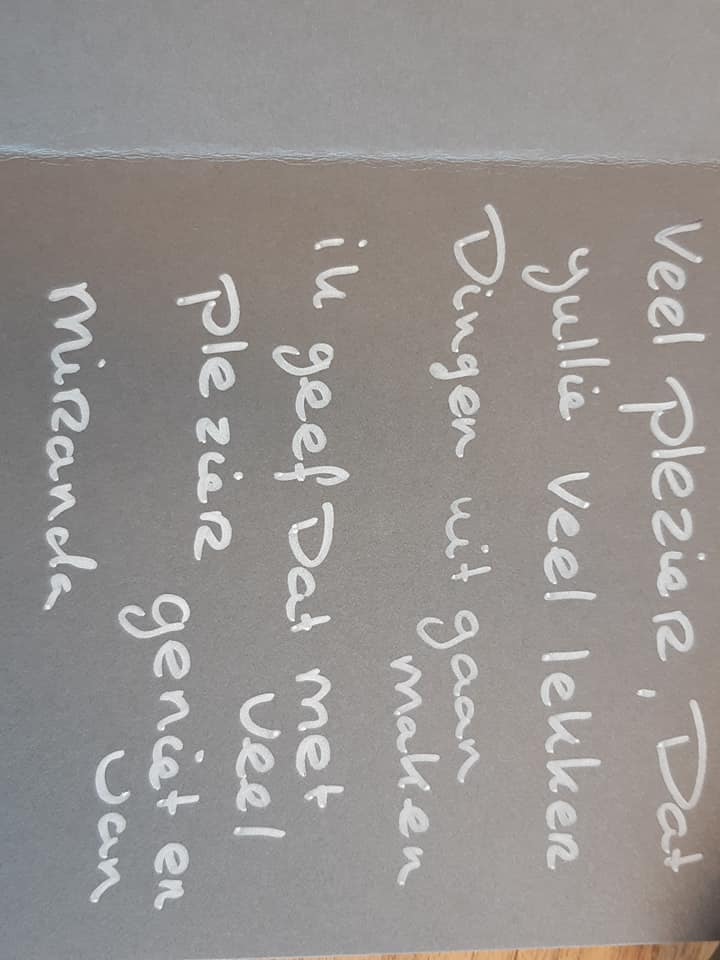 veel plezier, Dat
yullie veel lekker
Dingen uit gaan
maken
ik geef Dat met
veel
plezier
geniet er
van
Miranda